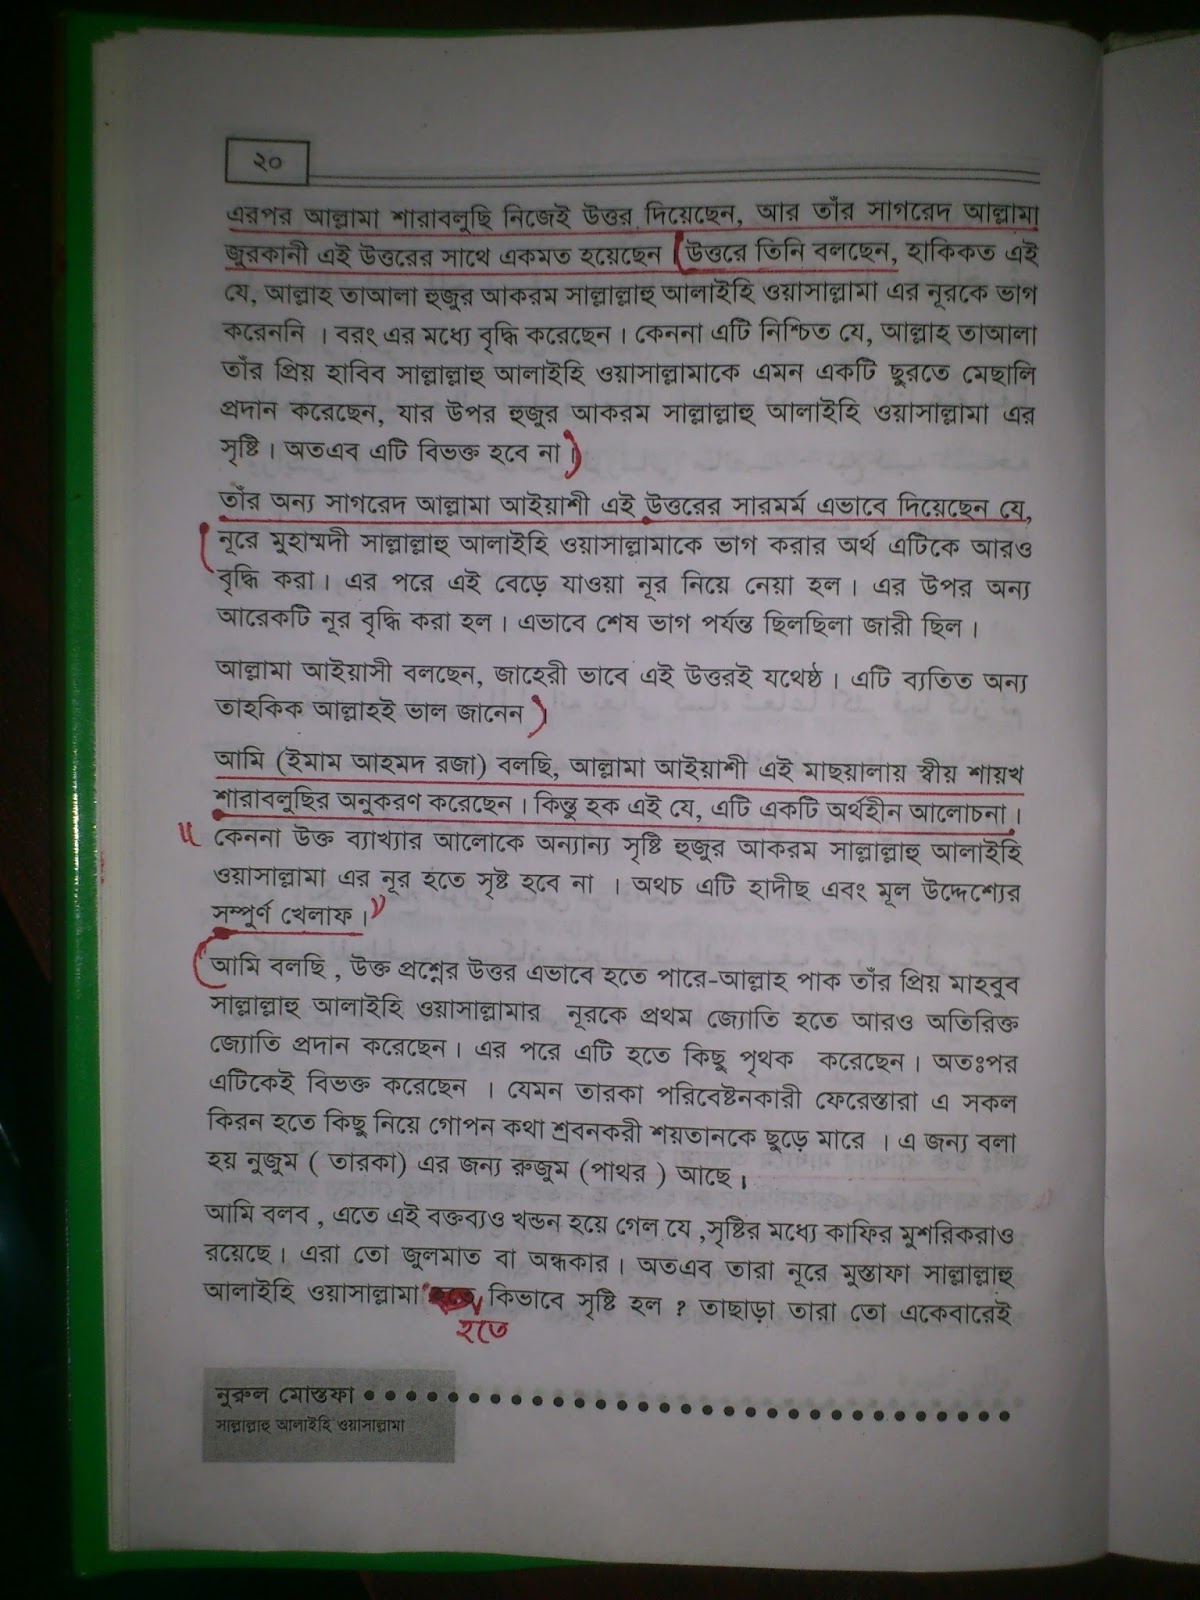 ২০
এরপর আল্লামা শারাবলুছি নিজেই উত্তর দিয়েছেন, আর তাঁর সাগরেদ আল্লামা
জুরকানী এই উত্তরের সাথে একমত হয়েছেন (উত্তরে তিনি বলছেন, হাকিকত এই
যে, আল্লাহ তাআলা হুজুর আকরম সাল্লাল্লাহু আলাইহি ওয়াসাল্লামা এর নূরকে ভাগ
করেননি । বরং এর মধ্যে বৃদ্ধি করেছেন । কেননা এটি নিশ্চিত যে, আল্লাহ তাআলা
তাঁর প্রিয় হাবিব সাল্লাল্লাহু আলাইহি ওয়াসাল্লামাকে এমন একটি ছুরতে মেছালি
প্রদান করেছেন, যার উপর হুজুর আকরম সাল্লাল্লাহু আলাইহি ওয়াসাল্লামা এর
সৃষ্টি । অতএব এটি বিভক্ত হবে না।)
তাঁর অন্য সাগরেদ আল্লামা আইয়াশী এই উত্তরের সারমর্ম এভাবে দিয়েছেন যে,
(নূরে মুহাম্মদী সাল্লাল্লাহু আলাইহি ওয়াসাল্লামাকে ভাগ করার অর্থ এটিকে আরও
বৃদ্ধি করা । এর পরে এই বেড়ে যাওয়া নূর নিয়ে নেয়া হল । এর উপর অন্য
আরেকটি নূর বৃদ্ধি করা হল । এভাবে শেষ ভাগ পর্যন্ত ছিলছিলা জারী ছিল ।
আল্লামা আইয়াসী বলছেন, জাহেরী ভাবে এই উত্তরই যথেষ্ঠ । এটি ব্যতিত অন্য
তাহকিক আল্লাহই ভাল জানেন)
আমি (ইমাম আহমদ রজা) বলছি, আল্লামা আইয়াশী এই মাছয়ালায় স্বীয় শায়খ
শারাবলুছির অনুকরণ করেছেন । কিন্তু হক এই যে, এটি একটি অর্থহীন আলোচনা ।
কেননা উক্ত ব্যাখ্যার আলোকে অন্যান্য সৃষ্টি হুজুর আকরম সাল্লাল্লাহু আলাইহি
ওয়াসাল্লামা এর নূর হতে সৃষ্ট হবে না । অথচ এটি হাদীছ এবং মূল উদ্দেশ্যের
সম্পুর্ণ খেলাফ ।
(আমি বলছি , উক্ত প্রশ্নের উত্তর এভাবে হতে পারে-আল্লাহ পাক তাঁর প্রিয় মাহবুব
সাল্লাল্লাহু আলাইহি ওয়াসাল্লামার নূরকে প্রথম জ্যোতি হতে আরও অতিরিক্ত
জ্যোতি প্রদান করেছেন । এর পরে এটি হতে কিছু পৃথক করেছেন । অতঃপর
এটিকেই বিভক্ত করেছেন । যেমন তারকা পরিবেষ্টনকারী ফেরেস্তারা এ সকল
কিরন হতে কিছু নিয়ে গোপন কথা শ্রবনকরী শয়তানকে ছুড়ে মারে । এ জন্য বলা
হয় নুজুম ( তারকা) এর জন্য রুজুম (পাথর ) আছে ।
আমি বলব , এতে এই বক্তব্যও খন্ডন হয়ে গেল যে ,সৃষ্টির মধ্যে কাফির মুশরিকরাও
রয়েছে । এরা তো জুলমাত বা অন্ধকার । অতএব তারা নূরে মুস্তাফা সাল্লাল্লাহু
আলাইহি ওয়াসাল্লামা কিভাবে সৃষ্টি হল ? তাছাড়া তারা তো একেবারেই
হতে
নুরুল মোস্তফা
সাল্লাল্লাহু আলাইহি ওয়াসাল্লামা